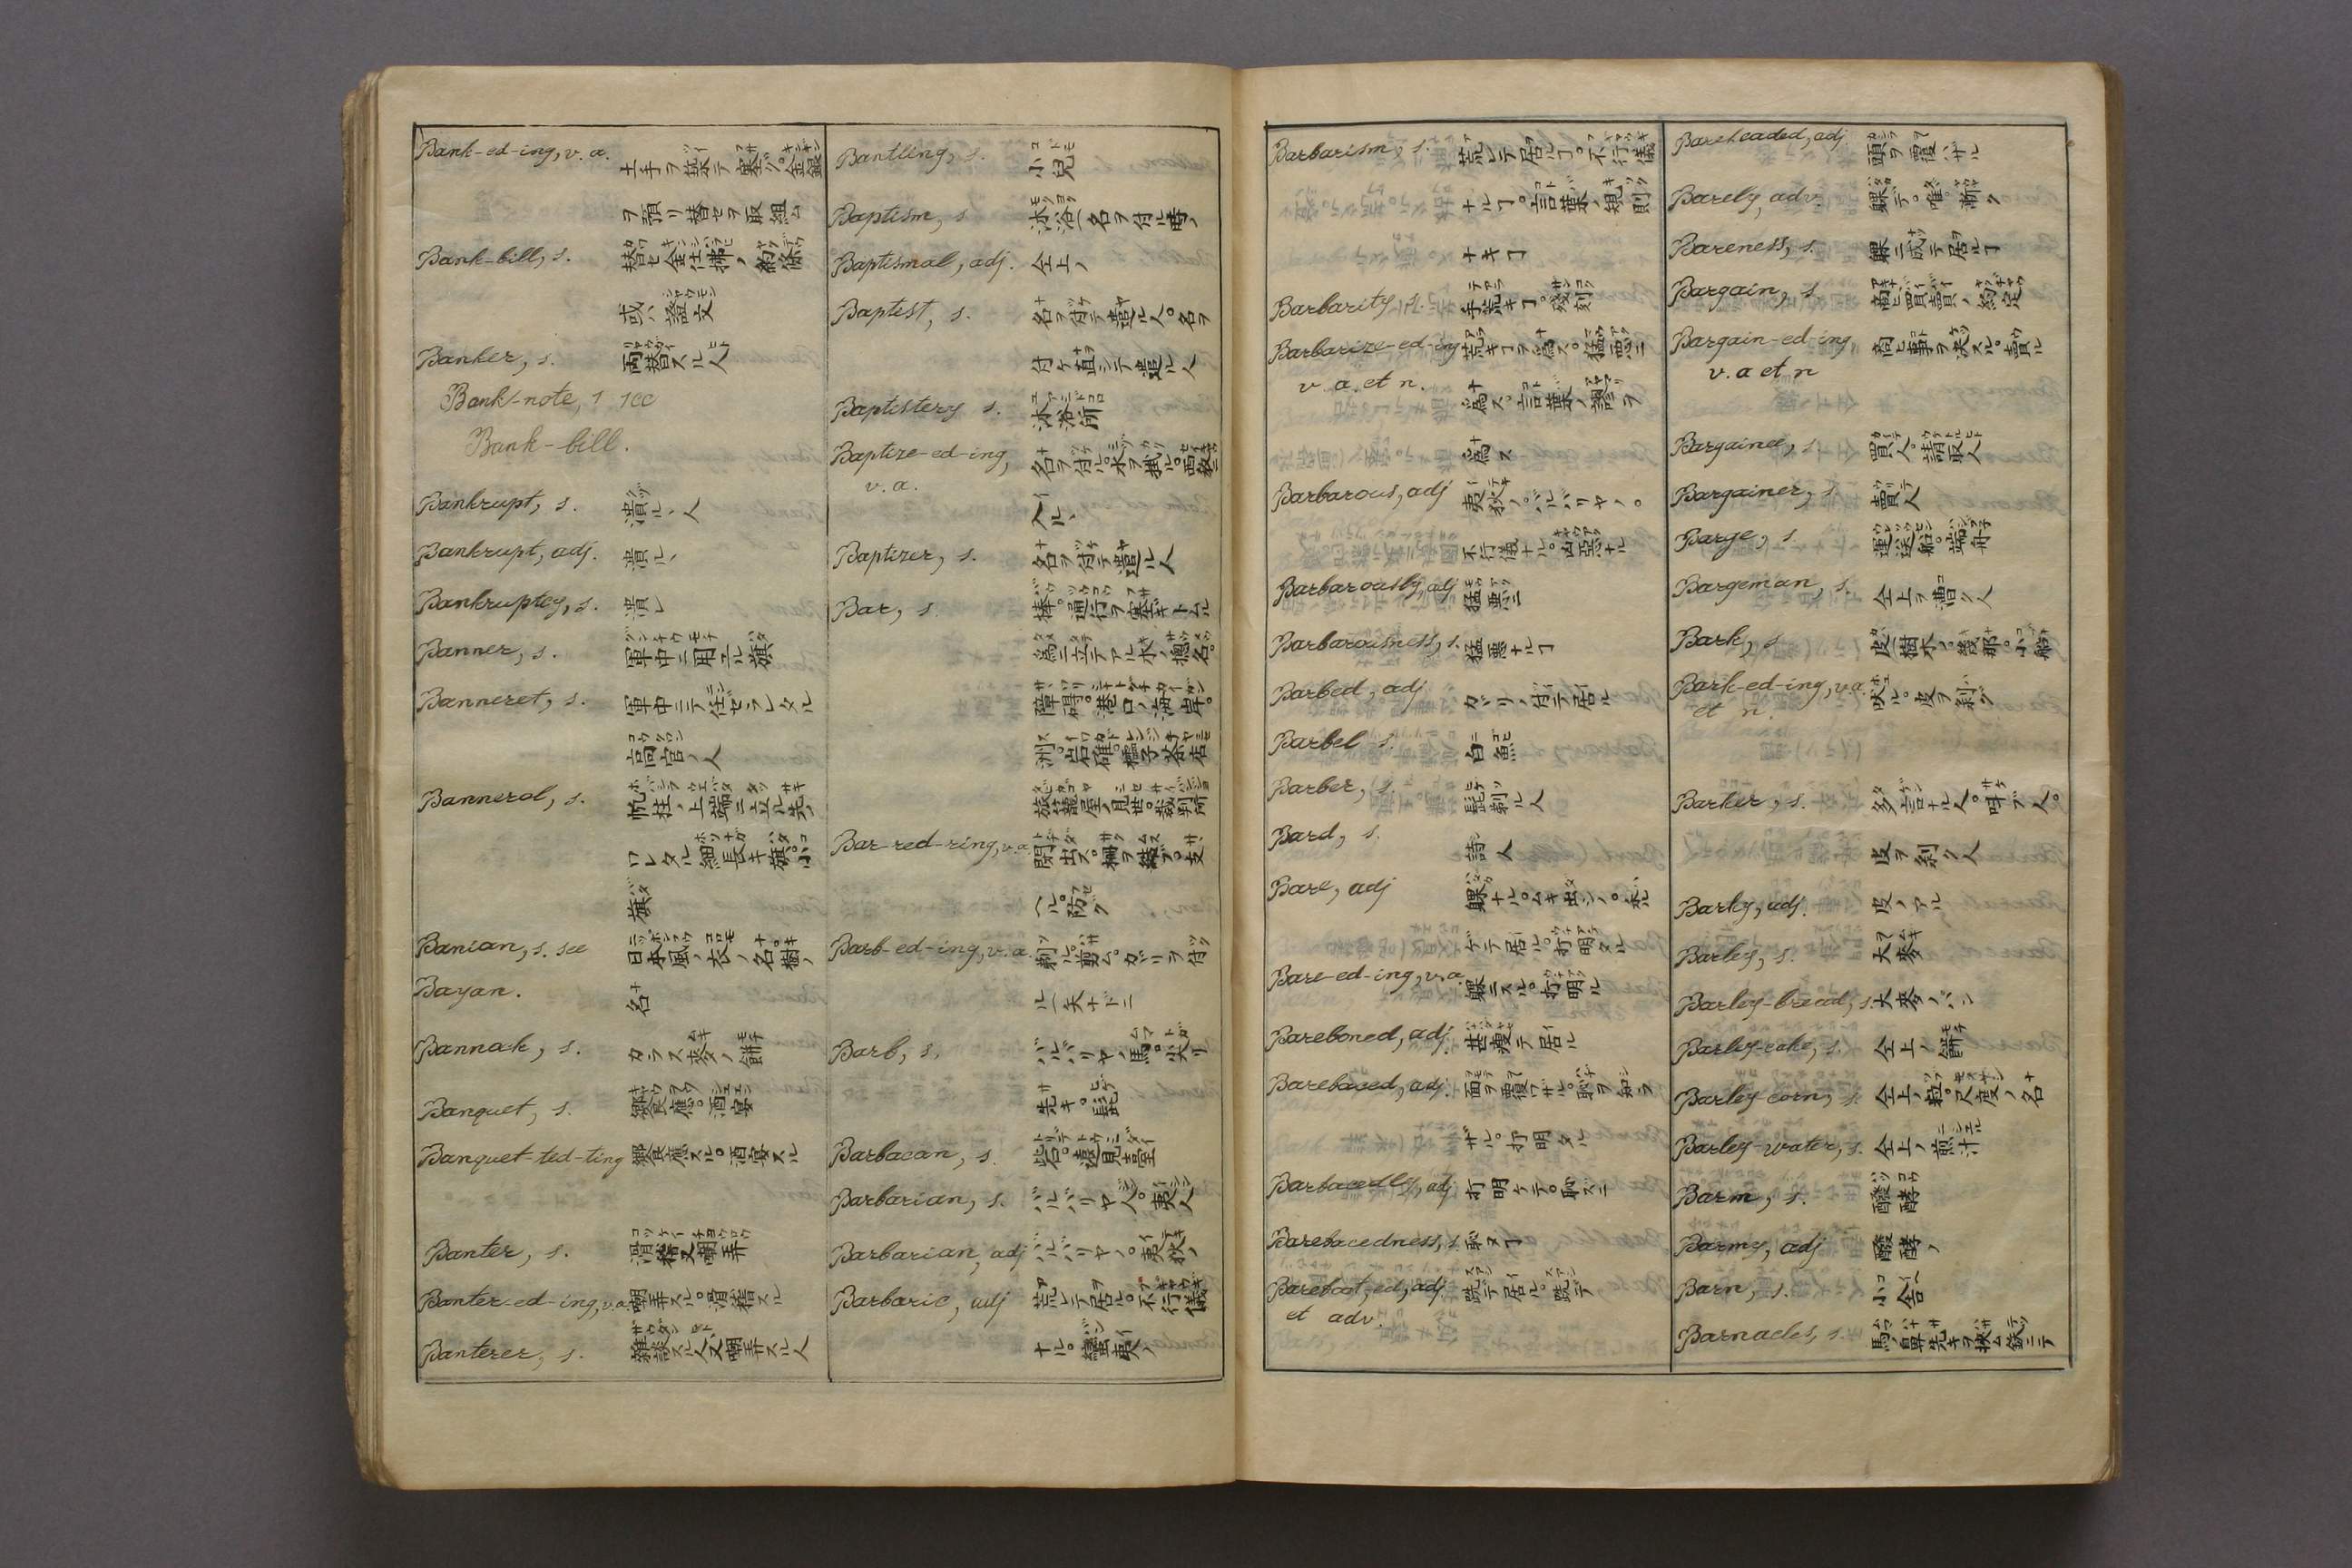 Bank-ed-ing, v. a. 土手ヲ築テ塞グ。金銀
ヲ預リ替セヲ取組ム
Bank-bill, s. 替セ金仕拂ノ約條
或ハ證文
Banker, s. 両替スル人
Bank-note, s see
Bank-bill.
Bankrupt, s. 潰ル丶人
Bankrupt, adj. 潰ル丶
Bankruptcy, s. 潰レ
Banner, s. 軍中ニ用ユル旗
Banneret, s. 軍中ニテ任ゼラレタル
高官ノ人
Bannerol, s. 帆柱ノ上端ニ立ル先ノ
ワレタル細長キ旗。小
旗
Banian, s. see 日本風ノ衣ノ名。樹ノ
Bayan. 名
Bannak, s. カラス麥ノ餅
Banquet, s. 饗應。酒宴
Banquet-ted-ting 饗應スル。酒宴スル
Banter, s. 滑稽又嘲弄
Banter-ed-ing, v.a. 嘲弄スル。滑稽スル
Banterer, s. 雜談スル人又嘲弄スル人
Bantling, s. 小兒
Baptism, s. 沐浴(名ヲ付ル時ノ
Baptismal, adj. 仝上ノ
Baptist, s. 名ヲ付テ遣ル人。名ヲ
付ケ直シテ遣ル人
Baptistery s. 沐浴所
Baptize-ed-ing, 名ヲ付ル。水ヲ掛ル。西教ニ
v. a. 入ル丶
Baptizer, s. 名ヲ付テ遣ル人
Bar, s. 棒。通行ヲ塞ギトムル
爲ニ立テアル木ノ惣名。
障碍。港口ノ海岸。
洲。岩礁。櫺子。茶店
旅籠屋ノ見世。裁判所
Bar-red-ring, v.a. 閉出ス。柵ヲ結ブ。支
ヘル。防グ
Barb-ed-ing, v. a. 剃ル。剪ム。ガリヲ付
ル(矢ナドニ
Barb, s. バルバリヤノ馬。尖リ
先キ。髭
Barbacan, s. 砦。遠見臺
Barbarian, s. バルバリヤ人。夷人
Barbarian, adj バルバリヤノ。夷狄ノ
Barbaric, adj 荒レテ居ル。不行儀
ナル。蠻夷ノ
Barbarism, s. 荒レテ居ルヿ。不行儀
ナルヿ。言葉ノ規則
ナキヿ
Barbarity, s. 手荒キヿ。殘刻
Barbarize-ed-ing 荒キヿヲ爲ス。猛悪ニ
v. a. et n. 爲ス。言葉ノ謬ヲ
爲ス
Barbarous, adj 夷狄ノ。バルバリヤノ。
不行儀ナル。凶惡ナル
Barbarously, adj 猛悪ニ
Barbarousness, s. 猛悪ナルヿ
Barbed, adj ガリノ付テ居ル
Barbel s. 白魚
Barber, s. 髭剃ル人
Bard, s. 詩人
Bare, adj 躶ナル。ムキ出シノ。禿
ゲテ居ル。打明タル
Bare-ed-ing, v. a. 躶ニスル。打明ル
Bareboned, adj. 甚瘦テ居ル
Barebaced, adj. 面ヲ覆ワザル。恥ヲ知ラ
ザル。打明タル
Barbacedly, adj 打明ケテ。恥ズニ
Barebacedness, s. 恥ヌヿ
Bareboot, ed, adj. 跣テ居ル。跣デ
et adv.
Bareheaded, adj 頭ヲ覆ハザル
Barely, adv. 躶デ。唯。漸ク
Bareness, s. 躶ニ成テ居ルヿ
Bargain, s. 商ヒ。買賣ノ約定
Bargain-ed-ing 商ヒ事ヲ決スル。賣ル
v. a et n
Bargainee, s. 買人。請取人
Bargainer, s. 賣人
Barge, s. 運送船。端舟
Bargeman, s. 仝上ヲ漕グ人
Bark, s. 皮(樹木ノ。幾那。小船
Bark-ed-ing, v.a. 吠ル。皮ヲ剥グ
et n.
Barker, s. 多言ナル人。呼ブ人。
皮ヲ剥グ人
Barky, adj. 皮ノアル
Barley, s. 大麥
Barley-bread, s. 大麥ノパン
Barley-cake, s. 仝上ノ餅
Barley-corn, s. 仝上ノ粒。尺度ノ名
Barley-water, s. 仝上ノ煎汁
Barm, s. 醱酵
Barmy, adj 醱酵ノ
Barn, s. 小舎
Barnacles, s. 馬ノ鼻先キヲ挾ム鉄ニテ